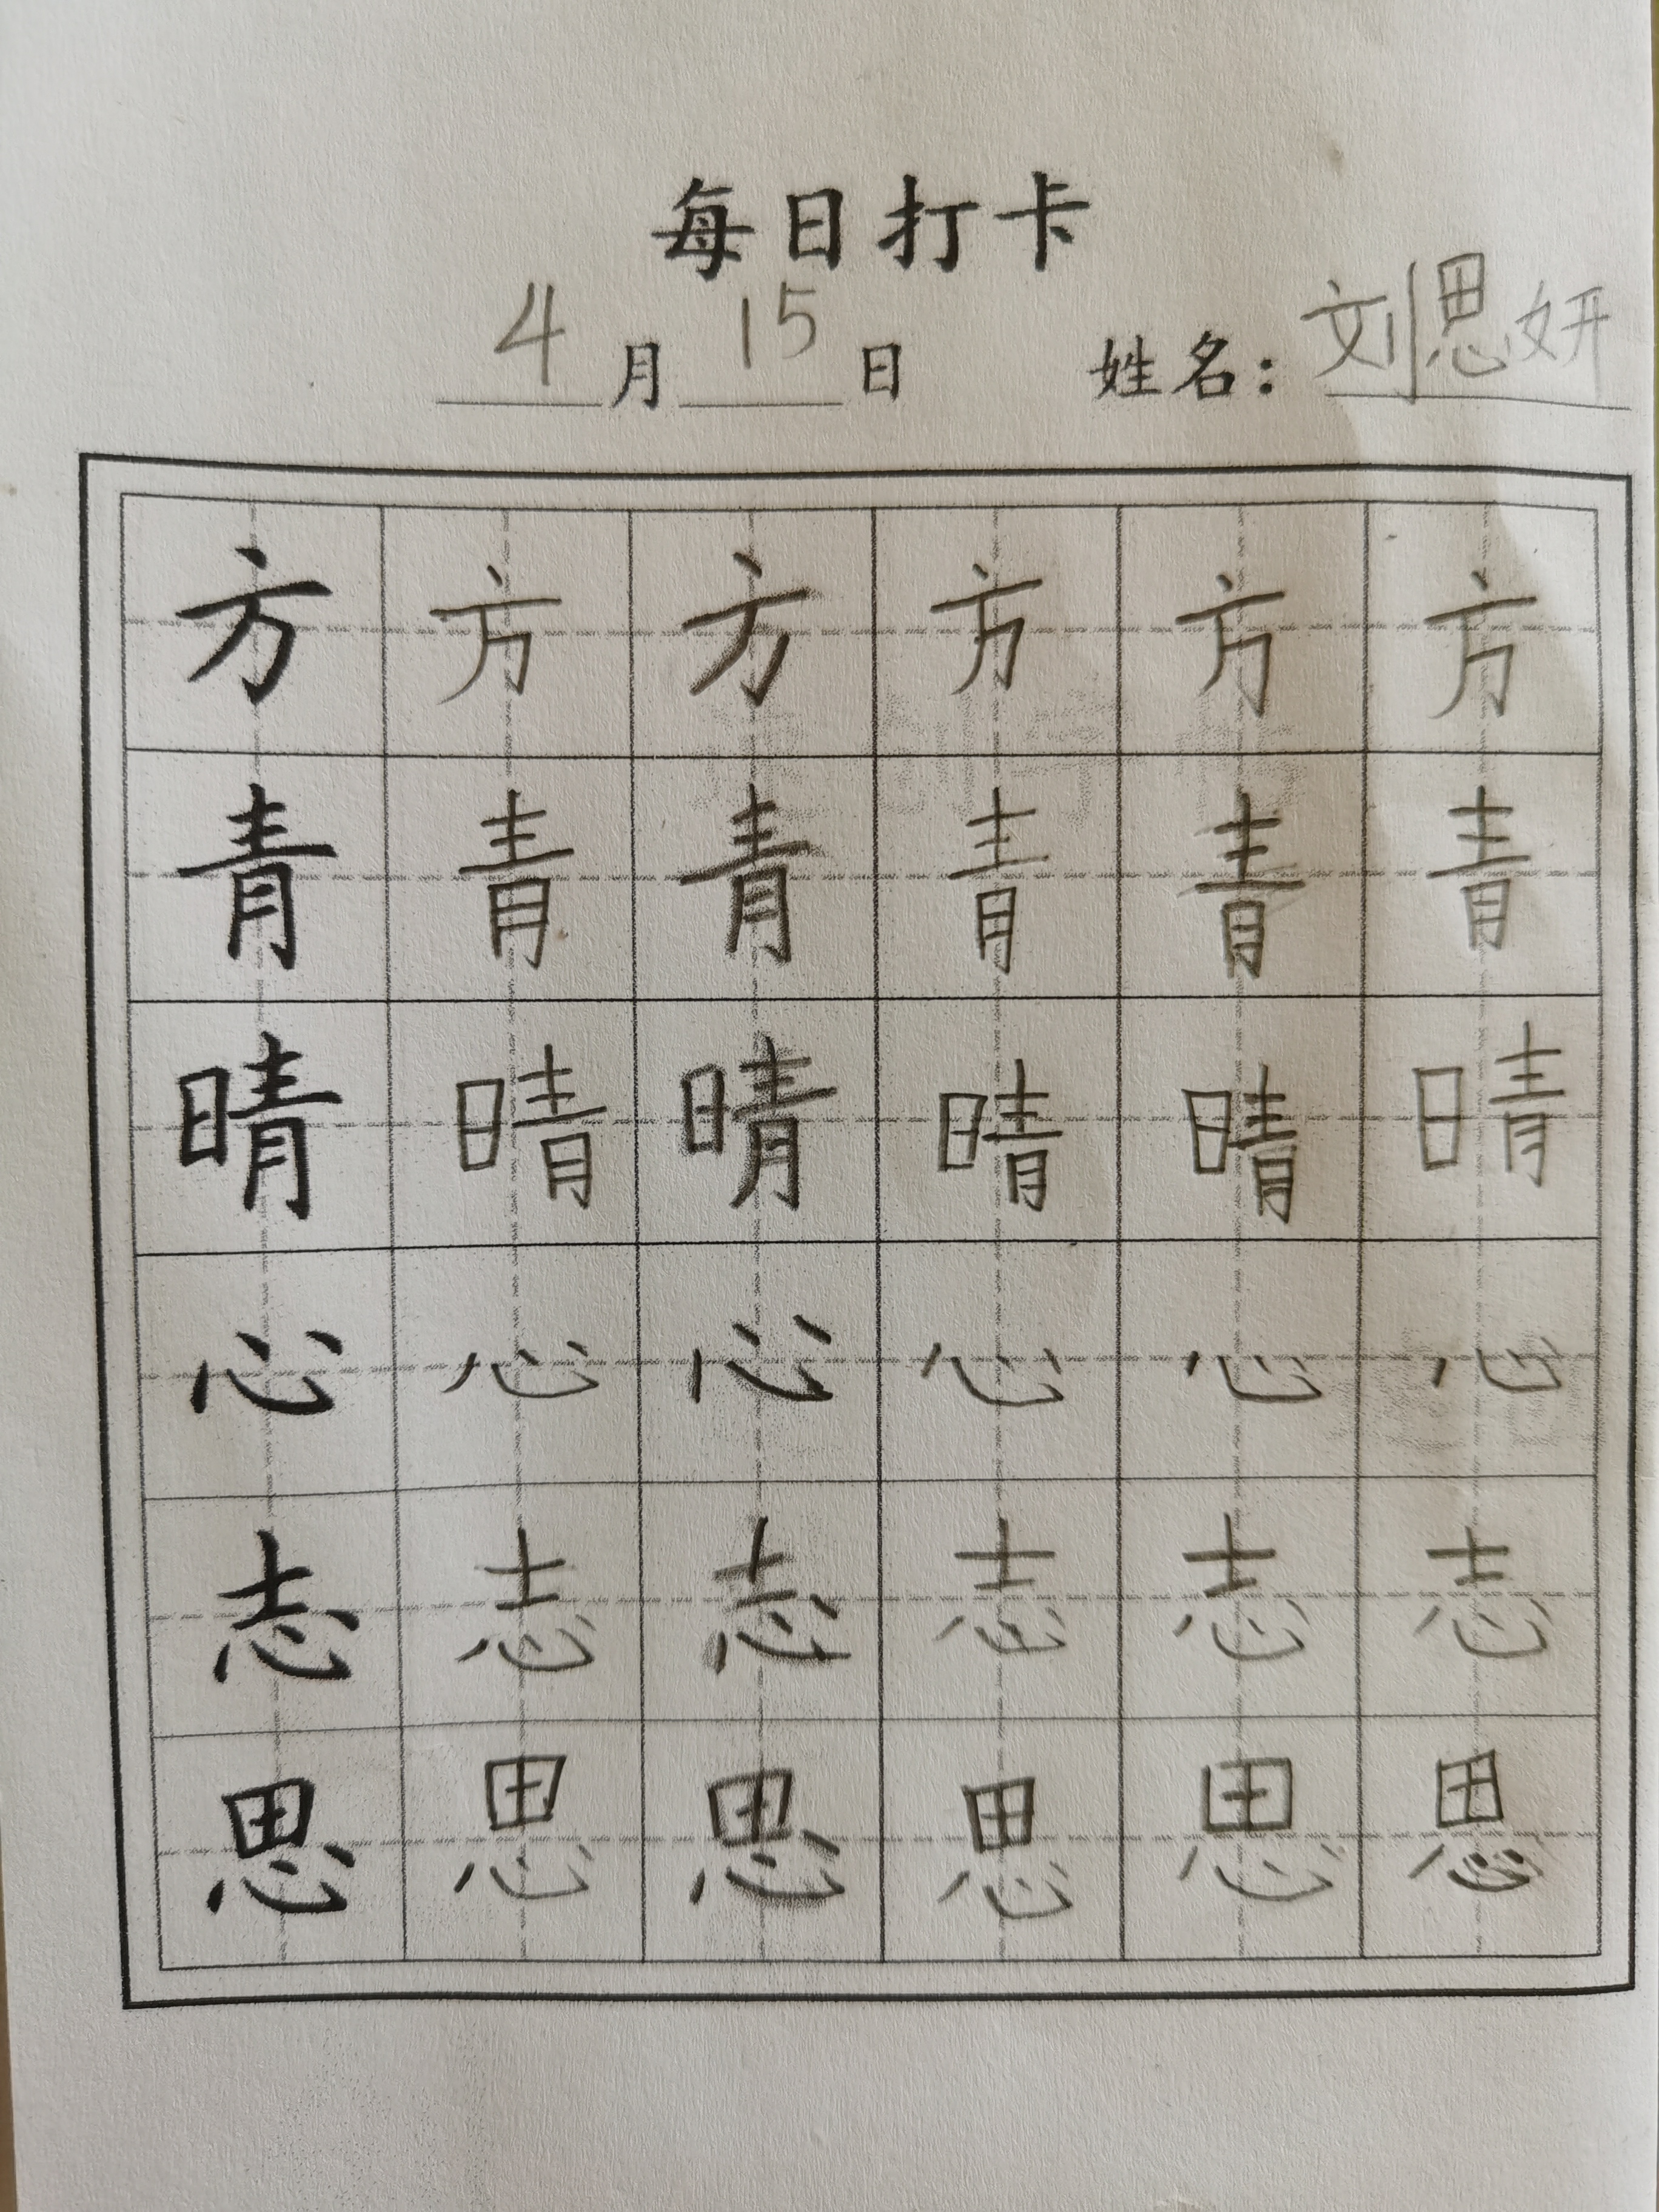 每日打卡
4月15日 姓名：刘思妍
方方方方方方
青青青青青青
晴晴晴晴晴晴
心心心心心心
志志志志志志
思思思思思思